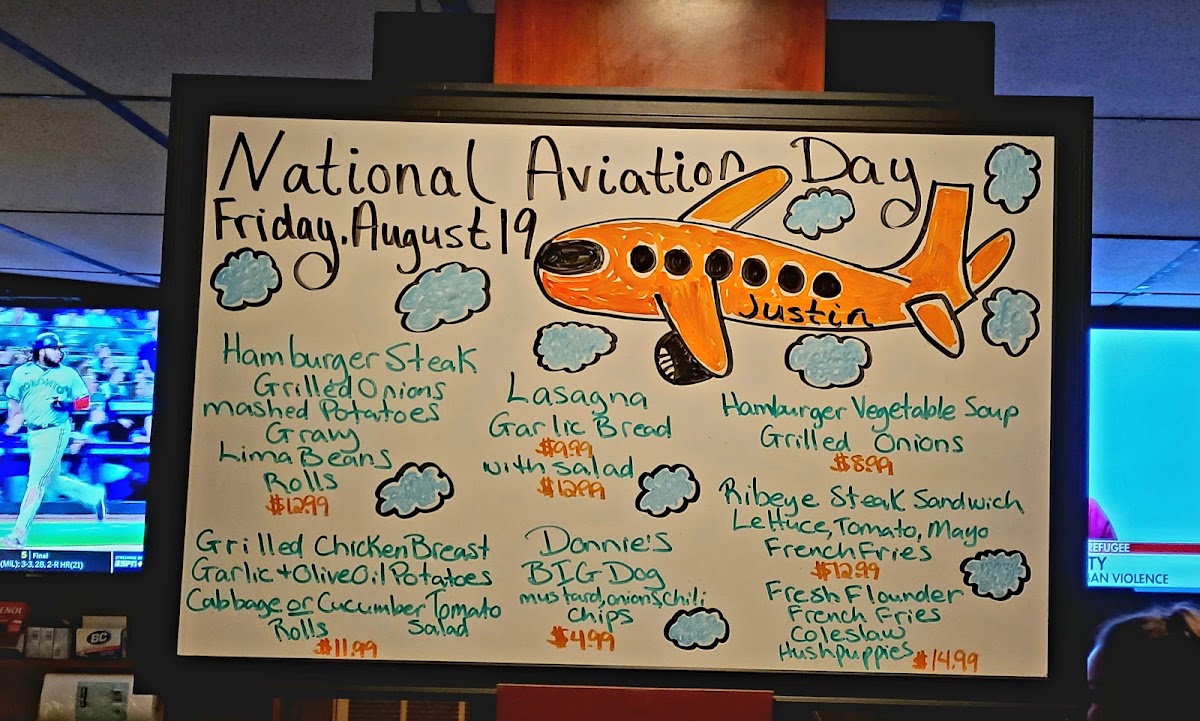 National Aviation Day
Friday, August 19
Justin
Hamburger Steak
Grilled Onions
mashed Potatoes
Gravy
Lima Beans
Rolls
$12.99
Lasagna
Garlic Bread
$9.99
with salad
$12.99
Hamburger Vegetable Soup
Grilled Onions
$8.99
Ribeye Steak Sandwich
Lettuce, Tomato, Mayo
French Fries
$12.99
Grilled Chicken Breast
Garlic + Olive Oil Potatoes
Cabbage or Cucumber Tomato
Rolls Salad
$11.99
Donnie's
BIG Dog
mustard, onions, chili
Chips
$4.99
Fresh Flounder
French Fries
Coleslaw
Hushpuppies $14.99
TORONTO
5 Final
(MIL): 3-3, 2B, 2-R HR(21)
ESPN
BC
REFUGEE
TY
AN VIOLENCE